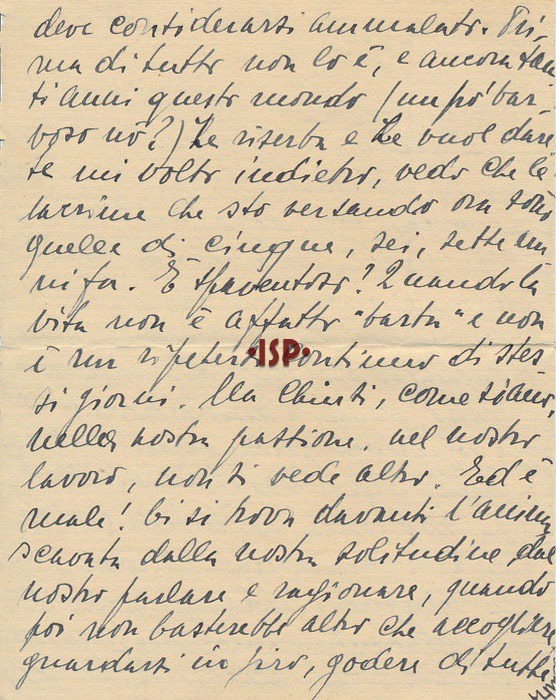 deve considerarsi ammalato. Pri-
ma di tutto non lo è, e ancora tan
ti anni questo mondo (un pò bar-
boso nò?) Le riserba e Le vuol dare
Se mi volto indietro, vedo che le
lacrime che sto versando ora sono
quelle di cinque, sei, sette an
ni fa. È spaventoso? Quando la
vita non è affatto "basta" e non
è un ripetersi continuo di stes
si giorni. Ma chiusi, come siamo,
nella nostra passione, nel nostro
lavoro, non si vede altro. Ed è
male! Ci si trova davanti l'anima
scavata dalla nostra solitudine, dal
nostro parlare e ragionare, quando
poi non basterebbe altro che accogliere
guardarsi in giro, godere di tutte
·ISP·